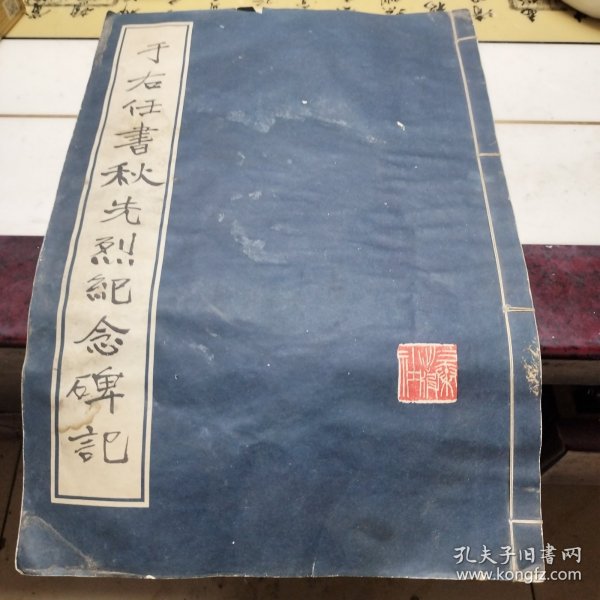 于右任書秋先烈紀念碑記
孔夫子旧書网
www.kongfz.com